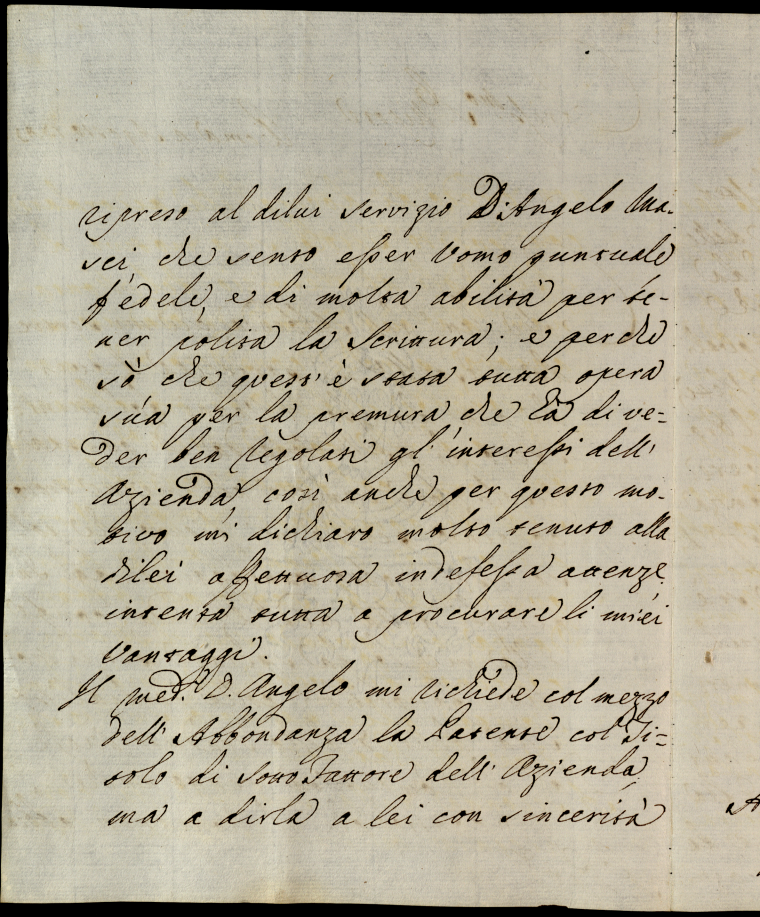 ripreso al dilui servizio D: Angelo Ma-
sci, che sento esser Vomo puntuale
fedele, e di molta abilità per te-
ner polita la Scrittura; e perche
sò che quest'è stata tutta opera
sua per la premura che Ea di ve-
der ben regolati gl'interessi dell'
Azienda, così anche per questo mo-
tivo mi dichiaro molto tenuto alla
dilei affettuosa indefessa attenze
intenta tutta a procurare li miei
vantaggi.
Il med.º D. Angelo mi richiede col mezzo
dell'Abbondanza la Patente col Ti=
tolo di sotto Fattore dell'Azienda,
ma a dirla a lei con sincerità